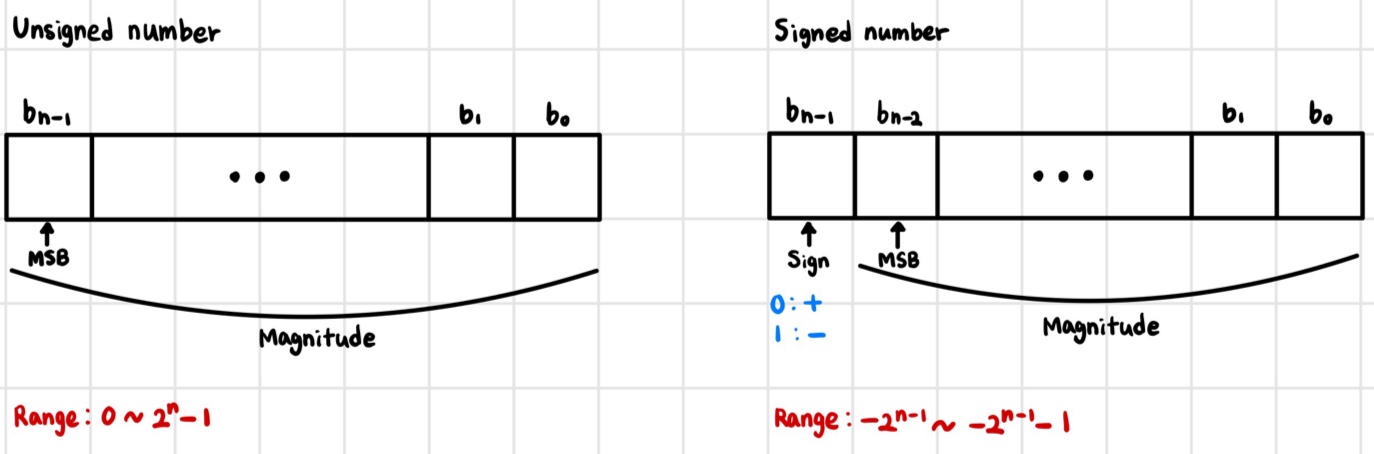 Unsigned number
bn-1 b1 b0
• • •
MSB
Magnitude
Range: 0 ~ 2ⁿ-1
Signed number
bn-1 bn-2 b1 b0
• • •
Sign MSB
0: +
1: -
Magnitude
Range: -2ⁿ⁻¹ ~ -2ⁿ⁻¹-1